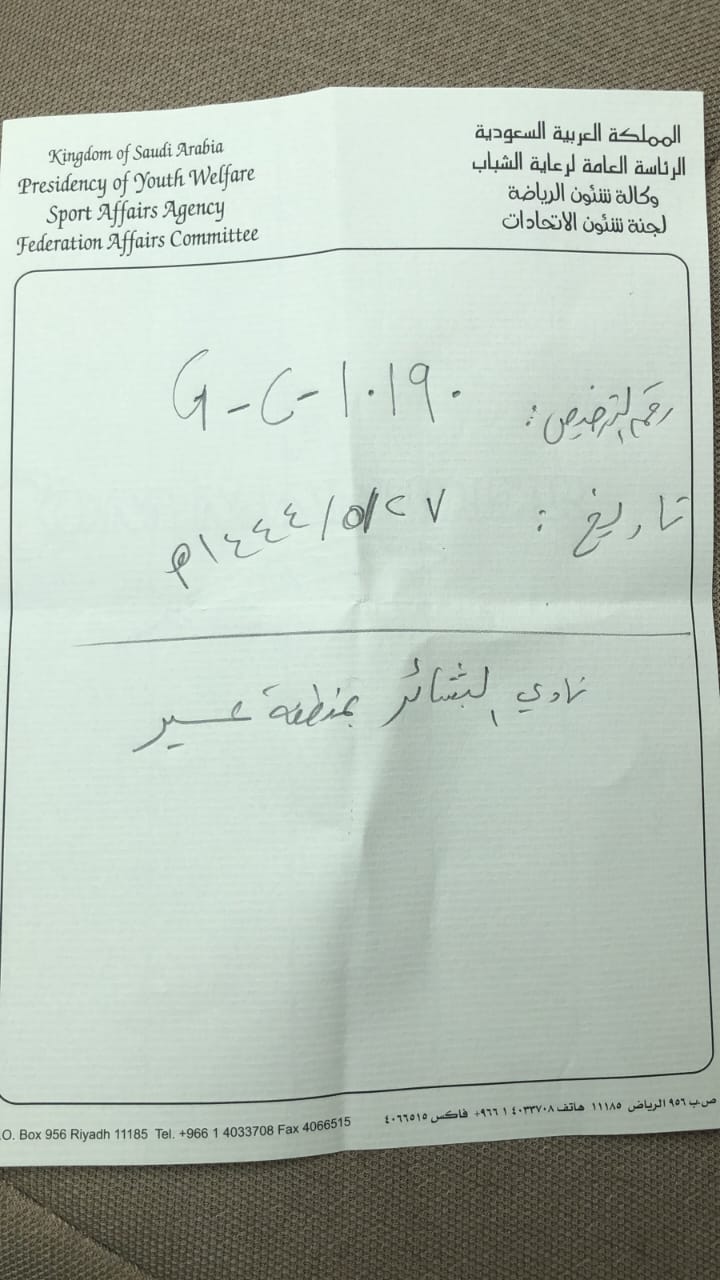 Kingdom of Saudi Arabia
Presidency of Youth Welfare
Sport Affairs Agency
Federation Affairs Committee
المملكة العربية السعودية
الرئاسة العامة لرعاية الشباب
وكالة شئون الرياضة
لجنة شئون الاتحادات
رقم الترخيص : G-C-١٠١٩٠
تاريخ : ٢٧/٥/١٤٤٤ه
نادي البشائر بمنطقة عسير
.O. Box 956 Riyadh 11185 Tel. +966 1 4033708 Fax 4066515
ص.ب ٩٥٦ الرياض ١١١٨٥ هاتف ٤٠٣٣٧٠٨ ١ ٩٦٦+ فاكس ٤٠٦٦٥١٥